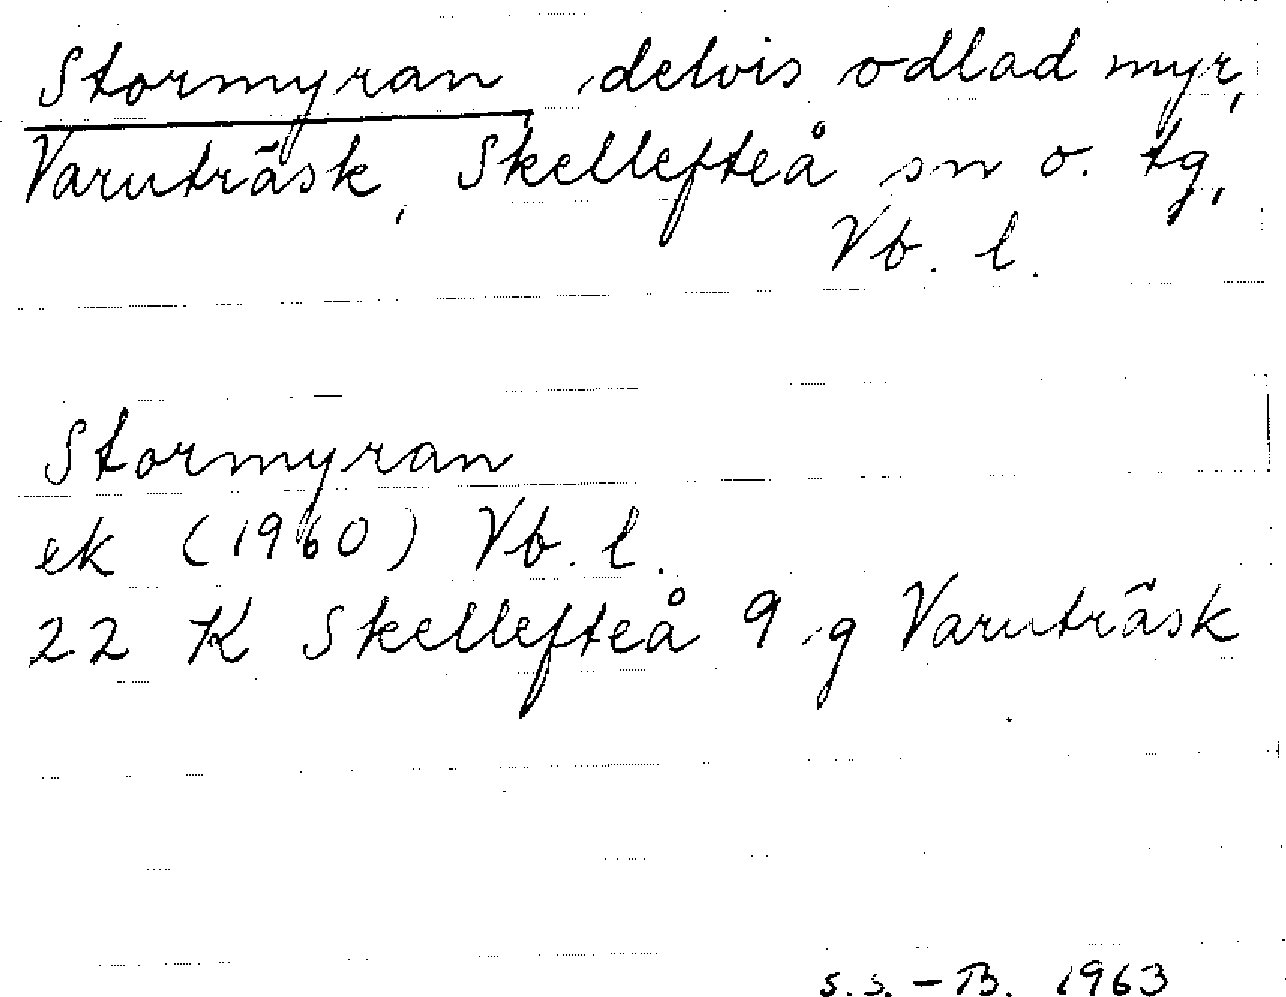 Stormyran, delvis odlad myr,
Varuträsk, Skellefteå sn o. tg,
Vb. l.
Stormyran
ek (1960) Vb. l.
22 K Skellefteå 9 g Varuträsk
S.S.-B. 1963